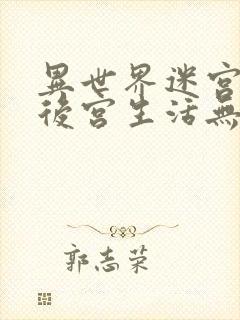 異世界迷宮
後宮生活無
郭志荣